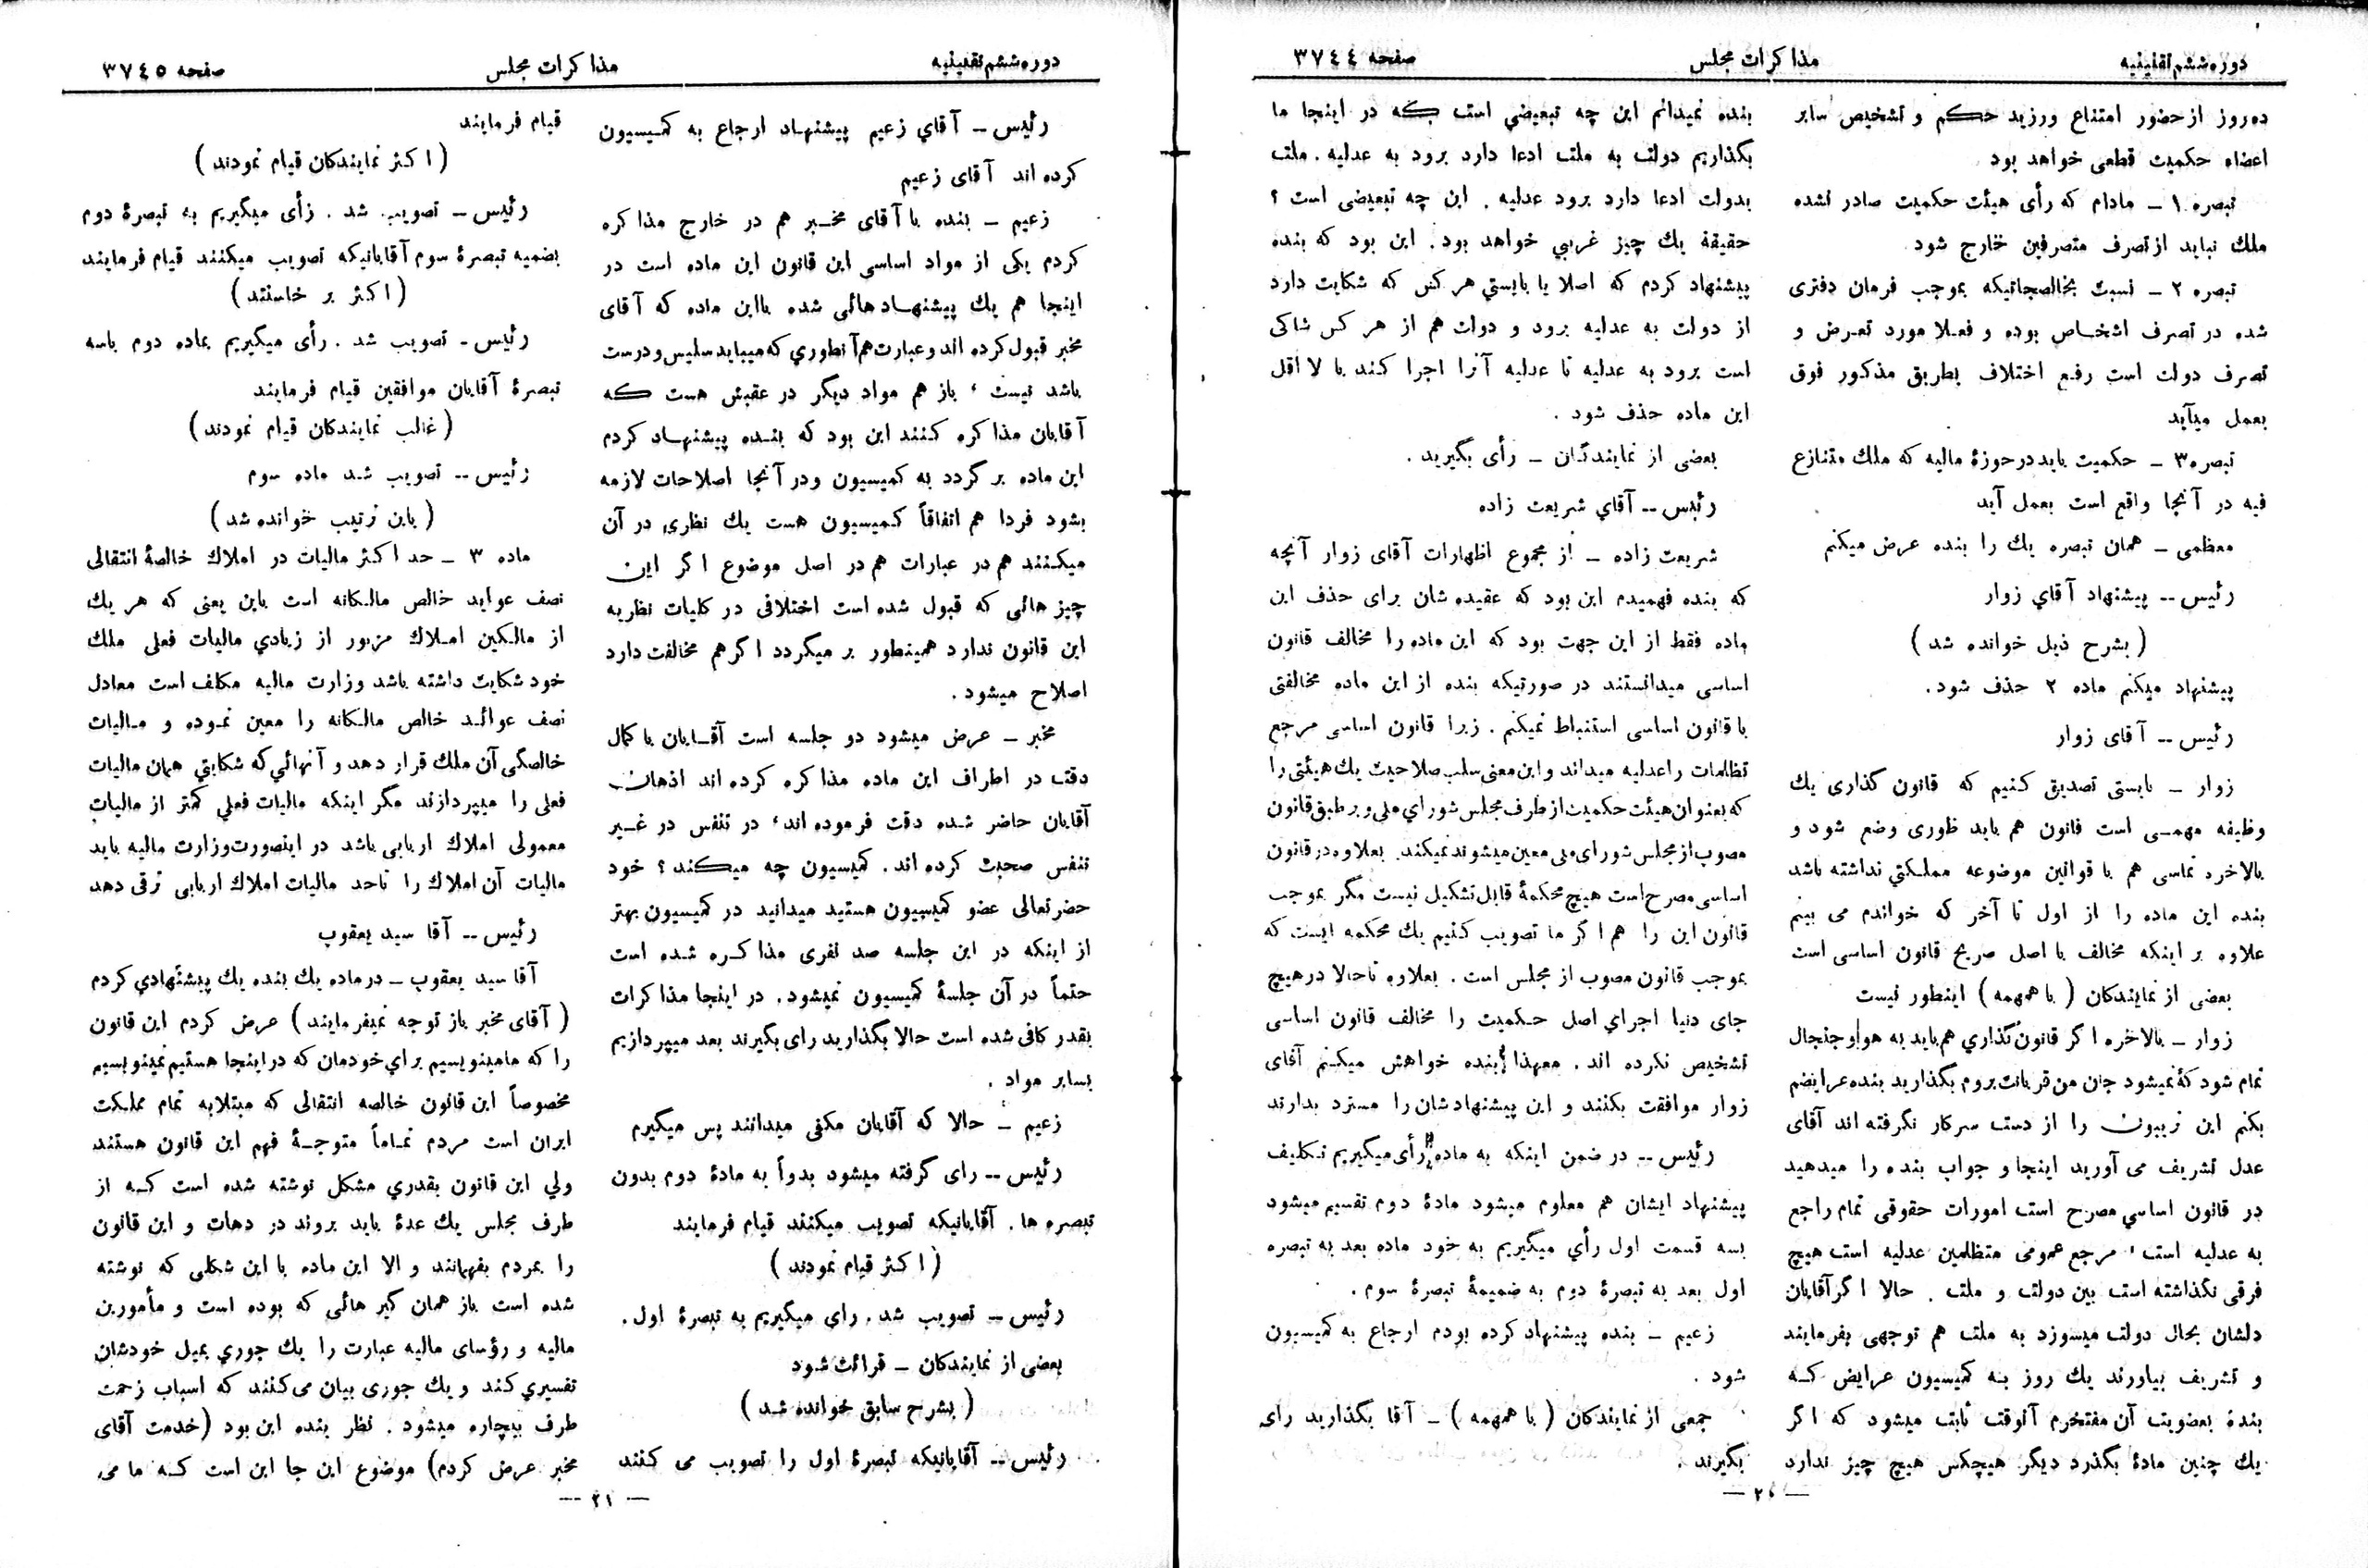 دوره ششم تقنینیه
مذاکرات مجلس
صفحه ۳۷٤٤
ده روز از حضور امتناع ورزید حکم و تشخیص سایر
اعضاء حکمیت قطعی خواهد بود
تبصره ۱ – مادام که رأی هیئت حکمیت صادر نشده
ملک نباید از تصرف متصرفین خارج شود
تبصره ۲ – نسبت بخالصجاتیکه بموجب فرمان دفتری
شده در تصرف اشخاص بوده و فعلا مورد تعرض و
تصرف دولت است رفع اختلاف بطریق مذکور فوق
بعمل میآید
تبصره ۳ – حکمیت باید در حوزهٔ مالیه که ملک متنازع
فیه در آنجا واقع است بعمل آید
معظمی – همان تبصره یك را بنده عرض میکنم
رئیس – پیشنهاد آقاي زوار
( بشرح ذیل خوانده شد )
پیشنهاد میکنم ماده ۲ حذف شود.
رئیس – آقای زوار
زوار – بایستی تصدیق کنیم که قانون گذاری یك
وظیفه مهمی است قانون هم باید طوری وضع شود و
بالاخره تماسی هم با قوانین موضوعه مملکتي نداشته باشد
بنده این ماده را از اول تا آخر که خواندم می بینم
علاوه بر اینکه مخالف با اصل صریح قانون اساسی است
بعضی از نمایندکان ( با همهمه ) اینطور نیست
زوار – بالاخره اکر قانون گذاري هم باید به هو و جنجال
تمام شود که نمیشود جان من قربانت بروم بگذارید بنده عرایضم
بکنم این تریبون را از دست سرکار نگرفته اند آقای
عدل تشریف می آورید اینجا و جواب بنده را میدهید
در قانون اساسي مصرح است امورات حقوقی تمام راجع
به عدلیه است ، مرجع عمومی متظلمین عدلیه است هیچ
فرقی نگذاشته است بین دولت و ملت . حالا اکر آقایان
دلشان بحال دولت میسوزد به ملت هم توجهی بفرمایند
و تشریف بیاورند یك روز به کمیسیون عرایض که
بنده بعضویت آن مفتخرم آنوقت ثابت میشود که اگر
یك چنین مادهٔ بگذرد دیگر هیچکس هیچ چیز ندارد
بنده نمیدانم این چه تبعیضي است که در اینجا ما
بگذاریم دولت به ملت ادعا دارد برود به عدلیه . ملت
بدولت ادعا دارد برود عدلیه . این چه تبعیضی است ؟
حقیقة یك چیز غریبي خواهد بود. این بود که بنده
پیشنهاد کردم که اصلا یا بایستي هر کس که شکایت دارد
از دولت به عدلیه برود و دولت هم از هر کس شاکی
است برود به عدلیه تا عدلیه آنرا اجرا کند یا لا اقل
این ماده حذف شود .
بعضی از نمایندگان – رأی بگیرید .
رئیس – آقاي شریعت زاده
شریعت زاده – از مجموع اظهارات آقای زوار آنچه
که بنده فهمیدم این بود که عقیده شان برای حذف این
ماده فقط از این جهت بود که این ماده را مخالف قانون
اساسی میدانستند در صورتیکه بنده از این ماده مخالفتی
با قانون اساسی استنباط نمیکنم . زیرا قانون اساسی مرجع
تظلمات را عدلیه میداند و این معنی سلب صلاحیت یك هیئتی را
که بعنوان هیئت حکمیت از طرف مجلس شوراي ملی و بر طبق قانون
مصوب از مجلس شورای ملی معین میشوند نمیکند. بعلاوه در قانون
اساسی مصرح است هیچ محکمهٔ قابل تشکیل نیست مگر بموجب
قانون این را هم اگر ما تصویب کنیم یك محکمه ایست که
بموجب قانون مصوب از مجلس است . بعلاوه تا حالا در هیچ
جای دنیا اجراي اصل حکمیت را مخالف قانون اساسی
تشخیص نکرده اند . معهذا بنده خواهش میکنم آقای
زوار موافقت بکنند و این پیشنهادشان را مسترد بدارند
رئیس – در ضمن اینکه به ماده رأی میگیریم تکلیف
پیشنهاد ایشان هم معلوم میشود مادهٔ دوم تقسیم میشود
بسه قسمت اول رأي میگیریم به خود ماده بعد به تبصره
اول بعد به تبصرهٔ دوم به ضمیمهٔ تبصرهٔ سوم .
زعیم – بنده پیشنهاد کرده بودم ارجاع به کمیسیون
شود .
جمعی از نمایندکان ( با همهمه ) – آقا بگذارید رای
بگیرند .
دوره ششم تقنینیه
مذاکرات مجلس
صفحه ۳۷٤٥
رئیس – آقاي زعیم پیشنهاد ارجاع به کمیسیون
کرده اند آقای زعیم
زعیم – بنده با آقای مخبر هم در خارج مذاکره
کردم یکی از مواد اساسی این قانون این ماده است در
اینجا هم یك پیشنهاد هائی شده بااین ماده که آقای
مخبر قبول کرده اند و عبارت هم آنطوري که میباید سلیس و درست
باشد نیست ، باز هم مواد دیگر در عقبش هست که
آقایان مذاکره کنند این بود که بنده پیشنهاد کردم
این ماده بر گردد به کمیسیون و در آنجا اصلاحات لازمه
بشود فردا هم اتفاقاً کمیسیون هست یك نظری در آن
میکنند هم در عبارات هم در اصل موضوع اگر این
چیز هائی که قبول شده است اختلافی در کلیات نظریه
این قانون ندارد همینطور بر میگردد اگر هم مخالفت دارد
اصلاح میشود .
مخبر – عرض میشود دو جلسه است آقایان با کمال
دقت در اطراف این ماده مذاکره کرده اند اذهان
آقایان حاضر شده دقت فرموده اند، در تنفس در غیر
تنفس صحبت کرده اند . کمیسیون چه میکند ؟ خود
حضرتعالی عضو کمیسیون هستید میدانید در کمیسیون بهتر
از اینکه در این جلسه صد نفری مذاکره شده است
حتماً در آن جلسهٔ کمیسیون نمیشود . در اینجا مذاکرات
بقدر کافی شده است حالا بگذارید رای بگیرند بعد میپردازیم
بسایر مواد .
زعیم – حالا که آقایان مکفی میدانند پس میگیرم
رئیس – رای گرفته میشود بدواً به مادهٔ دوم بدون
تبصره ها . آقایانیکه تصویب میکنند قیام فرمایند
( اکثر قیام نمودند )
رئیس – تصویب شد . رای میگیریم به تبصرهٔ اول .
بعضی از نمایندکان – قرائت شود
( بشرح سابق خوانده شد )
رئیس – آقایانیکه تبصرهٔ اول را تصویب می کنند
— ۲۱ —
قیام فرمایند
( اکثر نمایندکان قیام نمودند )
رئیس – تصویب شد . رأی میگیریم به تبصرهٔ دوم
بضمیه تبصرهٔ سوم آقایانیکه تصویب میکنند قیام فرمایند
( اکثر بر خاستند )
رئیس – تصویب شد . رأی میگیریم بماده دوم باسه
تبصرهٔ آقایان موافقین قیام فرمایند
( غالب نمایندکان قیام نمودند )
رئیس – تصویب شد ماده سوم
( باین ترتیب خوانده شد )
ماده ۳ – حد اکثر مالیات در املاك خالصهٔ انتقالی
نصف عواید خالص مالکانه است باین یعنی که هر یك
از مالکین املاك مزبور از زیادي مالیات فعلی ملك
خود شکایت داشته باشد وزارت مالیه مکلف است معادل
نصف عوائد خالص مالکانه را معین نموده و مالیات
خالصگی آن ملك قرار دهد و آنهائي که شکایتي همان مالیات
فعلی را میپردازند مگر اینکه مالیات فعلي کمتر از مالیات
معمولی املاك اربابی باشد در اینصورت وزارت مالیه باید
مالیات آن املاك را تاحد مالیات املاك اربابی ترقی دهد
رئیس – آقا سید یعقوب
آقا سید یعقوب – در ماده یك بنده یك پیشنهادي کردم
( آقای مخبر باز توجه نمیفرمایند ) عرض کردم این قانون
را که مامینویسیم براي خودمان که در اینجا هستیم نمینویسیم
مخصوصاً این قانون خالصه انتقالی که مبتلابه تمام مملکت
ایران است مردم تماماً متوجهٔ فهم این قانون هستند
ولي این قانون بقدري مشکل نوشته شده است که از
طرف مجلس یك عدهٔ باید بروند در دهات و این قانون
را بمردم بفهمانند و الا این ماده با این شکلی که نوشته
شده است باز همان گیر هائی که بوده است و مأمورین
مالیه و رؤسای مالیه عبارت را یك جوري بمیل خودشان
تفسیري کند و یك جوری بیان می کنند که اسباب زحمت
طرف بیچاره میشود . نظر بنده این بود (خدمت آقای
مخبر عرض کردم) موضوع این جا این است که ما می